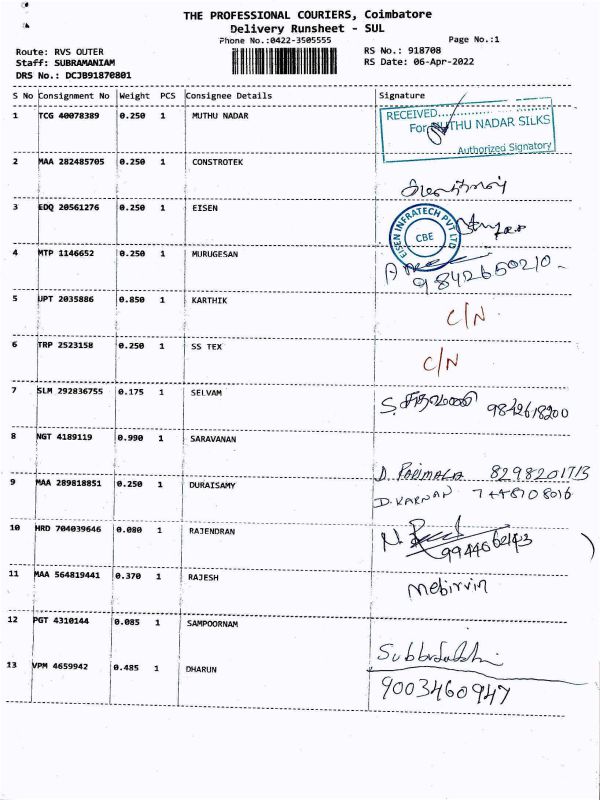 THE PROFESSIONAL COURIERS, Coimbatore
Delivery Runsheet - SUL
Phone No.:0422-3505555
Page No.:1
Route: RVS OUTER
RS No.: 918708
Staff: SUBRAMANIAM
RS Date: 06-Apr-2022
DRS No.: DCJB91870801
S No Consignment No Weight PCS Consignee Details Signature
1 TCG 40078389 0.250 1 MUTHU NADAR
RECEIVED
For MUTHU NADAR SILKS
Authorized Signatory
2 MAA 282485705 0.250 1 CONSTROTEK
3 EDQ 20561276 0.250 1 EISEN
EISEN INFRATECH PVT LTD
CBE
4 MTP 1146652 0.250 1 MURUGESAN
9842650210
5 UPT 2035886 0.850 1 KARTHIK
C/N
6 TRP 2523158 0.250 1 SS TEX
C/N
7 SLM 292836755 0.175 1 SELVAM
9842618200
8 NGT 4189119 0.990 1 SARAVANAN
D. PARIMALA 8298201713
9 MAA 289818851 0.250 1 DURAISAMY
D. KARNAN 7448108016
10 HRD 704039646 0.080 1 RAJENDRAN
11 MAA 564819441 0.370 1 RAJESH
12 PGT 4310144 0.085 1 SAMPOORNAM
13 VPM 4659942 0.485 1 DHARUN
9003460947